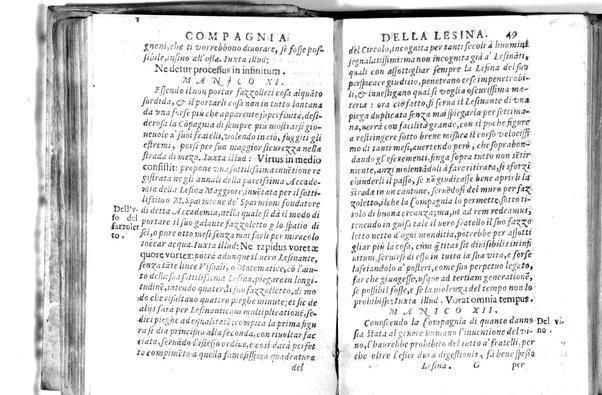 COMPAGNIA
gnoni, che ti vorrebbono diuorare, se fosse pos-
sibile, insino all'ossa. Iuxta illud:
Ne detur processus in infinitum.
MANICO XI.
Essendo il non portar fazzoletti cosa alquāto
sordida, & il portarli cosa non in tutto lontana
da vna forse più che apparente superfluità, desi-
derosa la Cōpagnia di sempre più mostrarsi gio-
ueuole a' suoi fratelli, volendo in ciò, fuggiti gli
estremi, porsi per sua maggior sicurezza nella
strada di mezo. Iuxta illud: Virtus in medio
consistit: propone vna sottilissima inuētione re
gistrata negli annali della parcissima Accade-
mia della Lesina Maggiore, inuētata per il sotti-
lissimo M. Sparmione de' Sparmioni fondatore
di detta Academia, nella quale si dà il modo di
portare il suo galante fazzoletto per lo spatio di
sei, o pure otto mesi senza mai farli per miracolo
toccar acqua. Iuxta illud: Ne rapidus voret æ
quore vortex: potrà adunque il vero Lesinante,
senza tāte linee Visuali, o Matematice, cō l'aiu-
to della sua sottilissima Lesina, piegare in longi-
tudine, intendo quater, il suo fazzoletto, di mo
do che risultano quattro pieghe minute; et se de
aliijs farà per Lesinanticam multiplicatione, se-
dici pieghe ad equalità; compita la prima figu
ra si dia principio alla seconda, con riuoltar fac
ciata, seruādo l'istesso ordine, e così darà perfet
to compimēto a quella famosissima quadratura
del
Dell'v-
so del
fazzolet
to.
DELLA LESINA. 49
del Circolo, incognita per tanti secoli à huomini
segnalatissimi: ma non incognita già a' Lesināti,
quali con assottigliar sempre la Lesina del suo
perspicace giuditio, penetrano cose impenetrabi-
li, & inuestigano qual si voglia oscurissima ma-
teria: ora ciò fatto, si serui il Lesinante di vna
piega duplicata senza mai spiegarla per settima-
na, uerrà con facilità grande, con sì poche figure
a restringere sotto breue misura il corso velocissi
mo di tanti mesi, auertendo però, che soprabon-
dando gli escrementi, finga sopra tutto non sētir
niente, anzi violentādoli à fare ritirata, si sforzi
chiuderli il passo, se nō giudicasse bene aprirli la
strada in un cantone, seruēdosi del muro per faz
zoletto, ilche la Compagnia lo permette, sotto ti-
tolo di buona creanza; ma, ut ad rem redeamus,
tenendo in guisa tale il uero fratello il suo fazzo
letto netto d'ogni monditia, potrebbe per assotti
gliar più la cosa, cùm q̃titas sit diuisibilis in infi
nitum, seruirsi di esso in tutta la sua vita, e forse
lasciandolo a' posteri, come suo perpetuo legato,
far che giungesse, usque ad tertiam generationē,
se possibil fosse, e se la violenza del tempo non lo
prohibisse: Iuxta illud. Vorat omnia tempus.
MANICO XII.
Conoscendo la Compagnia di quanto danno
sia stata al genere humano l'inuentione del vi-
no, l'haurebbe prohibito del tutto a' fratelli, per
che oltre l'esser dura digestionis, fà bene spesso
Lesina. G per
Del vi-
no.